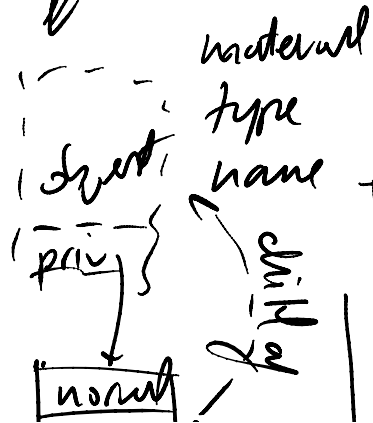 material
type
name
object
priv
child of
normal